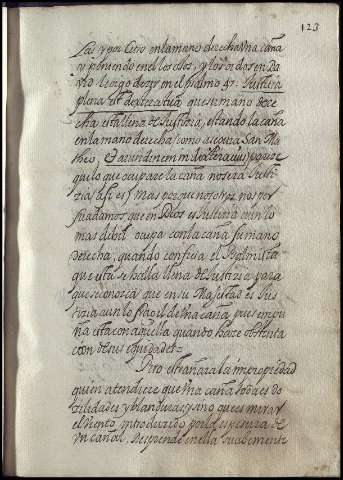 123
Rey y por Cetro en la mano derecha Vna caña
y poniendo en el los ojos, y los oidos en Da
vid le oigo dezir en el psalmo 47. Iustitia
plena est dextera tua que su mano dere
cha esta llena de Justicia, estando la caña
en la mano derecha, como asegura San Ma
theo, & arundinem in dextera eius, porque
que lo que ocupare la caña no sera Justi
zia, assi es, mas porque nosotros nos per
suadamos, que en Dios es Justicia aun lo
mas debil ocupa con la caña su mano
derecha, quando confiesa el Psalmista
que esta se halla llena de Justizia para
que se conozca que en su Magestad es Jus
tizia aun lo fragil de Vna caña, pues empu
ña esta con aquella quando haze obstenta
cion de sus equidades=
Pero estrañara la impropiedad
quien atendiere que Vna caña todo es de
bilidades y blanduras, y sino que es mirar
el Viento, introducido por la espesura de
Vn cañal, desprende en ella suabemente